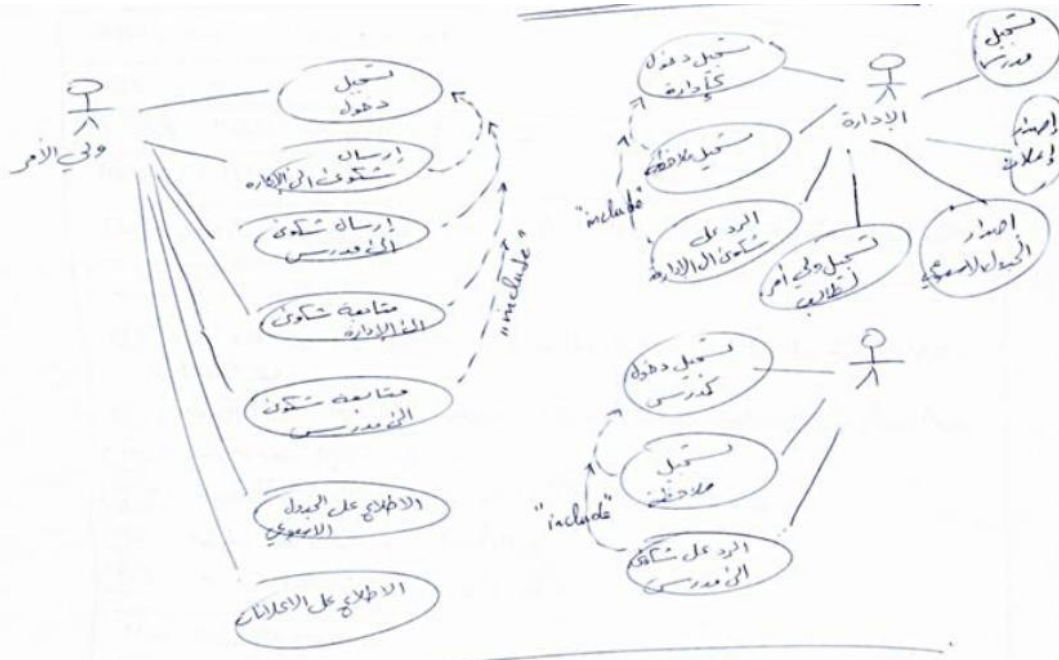 ولي الأمر
تسجيل
دخول
إرسال
شكوى الى الإدارة
إرسال شكوى
الى مدرس
متابعة شكوى
الى الإدارة
متابعة شكوى
الى مدرس
الاطلاع على الجدول
الاسبوعي
الاطلاع على الاعلانات
"include"
الإدارة
تسجيل دخول
كإدارة
تسجيل ملاحظة
الرد على
شكوى الى الادارة
"include"
تسجيل ولي أمر
لطالب
اصدار
الجدول الاسبوعي
إصدار
إعلانات
تسجيل
مدرس
تسجيل دخول
كمدرس
تسجيل
ملاحظة
الرد على شكوى
الى مدرس
"include"